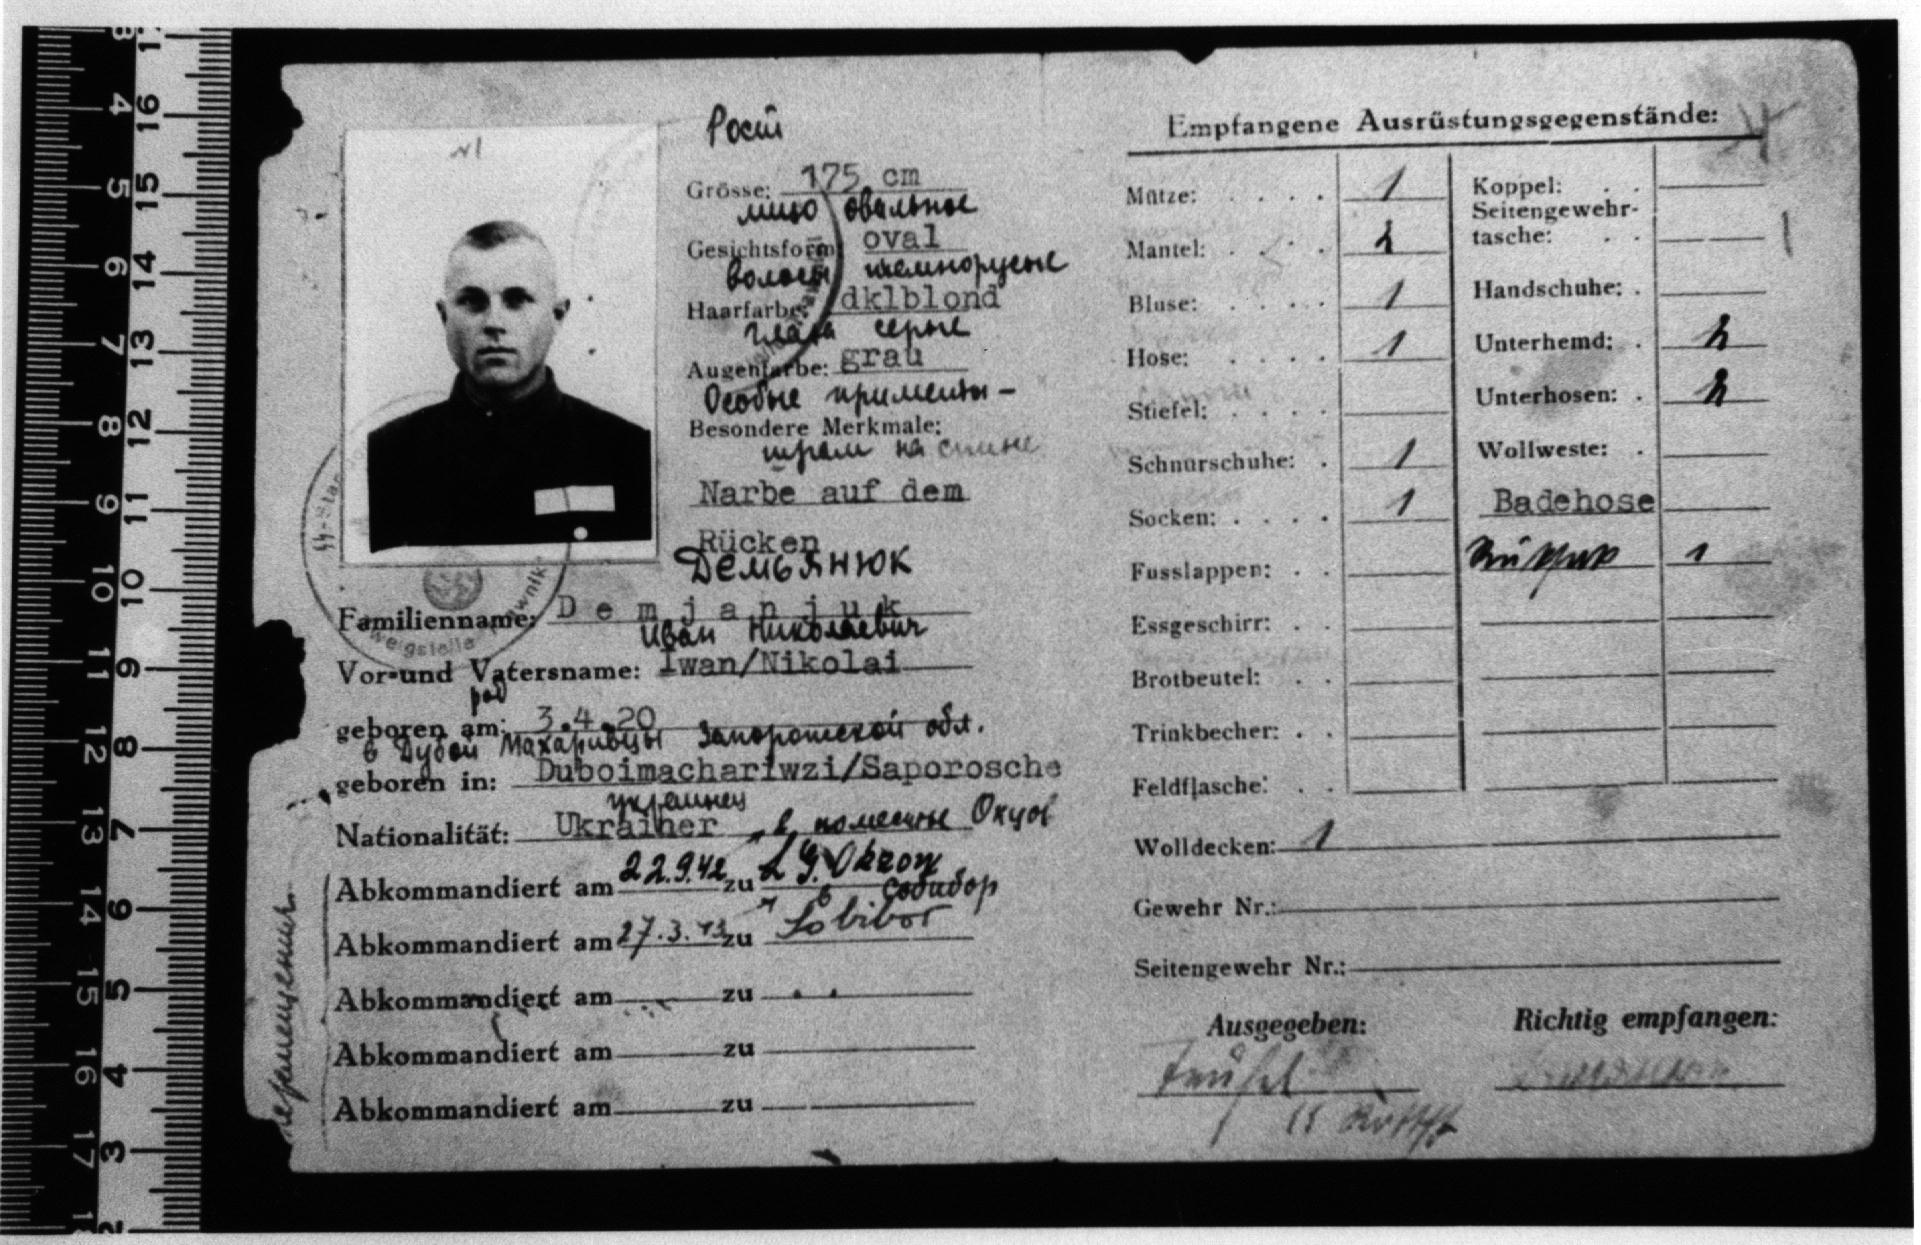 Рост
Grösse: 175 cm
лицо овальное
Gesichtsform: oval
волосы темнорусые
Haarfarbe: dklblond
глаза серые
Augenfarbe: grau
Особые приметы -
Besondere Merkmale:
шрам на спине
Narbe auf dem
Rücken
Демьянюк
Familienname: Demjanjuk
Иван Николаевич
Vor- und Vatersname: Iwan/Nikolai
род
geboren am: 3.4.20
в Дубой Махаривцы Запорожской обл.
geboren in: Duboimachariwzi/Saporosche
украинец
Nationalität: Ukrainer
в поместье Окцов
Abkommandiert am 22.9.42 zu L.G. Okzow
в Собибор
Abkommandiert am 27.3.43 zu Sobibor
Abkommandiert am zu
Abkommandiert am zu
Abkommandiert am zu
перемещения
Empfangene Ausrüstungsgegenstände:
Mütze: 1
Mantel: 1
Bluse: 1
Hose: 1
Stiefel:
Schnürschuhe: 1
Socken: 1
Fusslappen:
Essgeschirr:
Brotbeutel:
Trinkbecher:
Feldflasche:
Koppel:
Seitengewehr-
tasche:
Handschuhe:
Unterhemd: 2
Unterhosen: 2
Wollweste:
Badehose
1
Wolldecken: 1
Gewehr Nr.:
Seitengewehr Nr.:
Ausgegeben:
Teufel
Richtig empfangen: